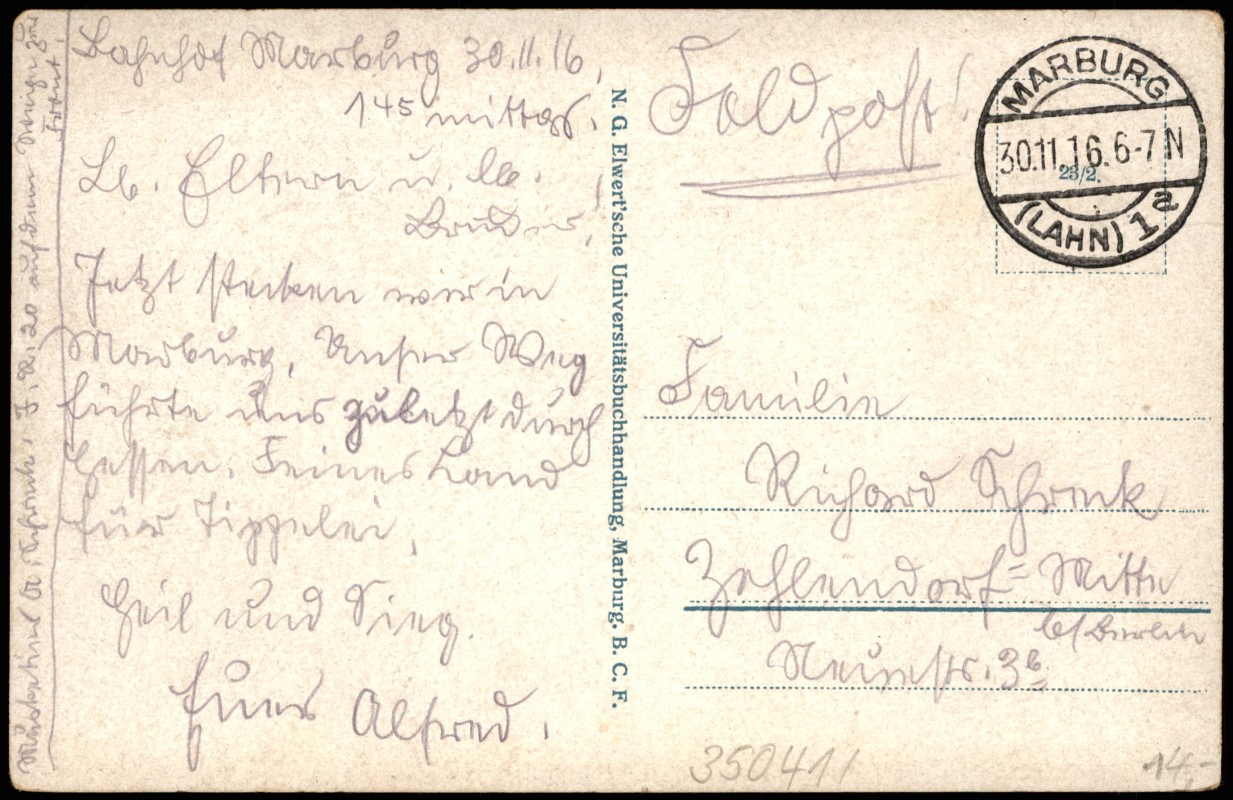 Bahnhof Marburg 30.11.16,
1 45 mittags.
Lb. Eltern u. lb.
Bruder,
Jetzt stecken wir in
Marburg, Unser Weg
führte uns zuletzt durch
Hessen. Feines Land
für Tippelei.
Heil und Sieg.
Euer Alfred.
Musketier A. Schrenk, J. R. 20 auf dem Wege zur
Front.
N. G. Elwert'sche Universitätsbuchhandlung, Marburg. B. C. F.
Feldpost!
MARBURG
30.11.16.6-7N
(LAHN) 1a
23/2.
Familie
Richard Schrenk
Zehlendorf-Mitte
b/Berlin
3b.
350411
14,-